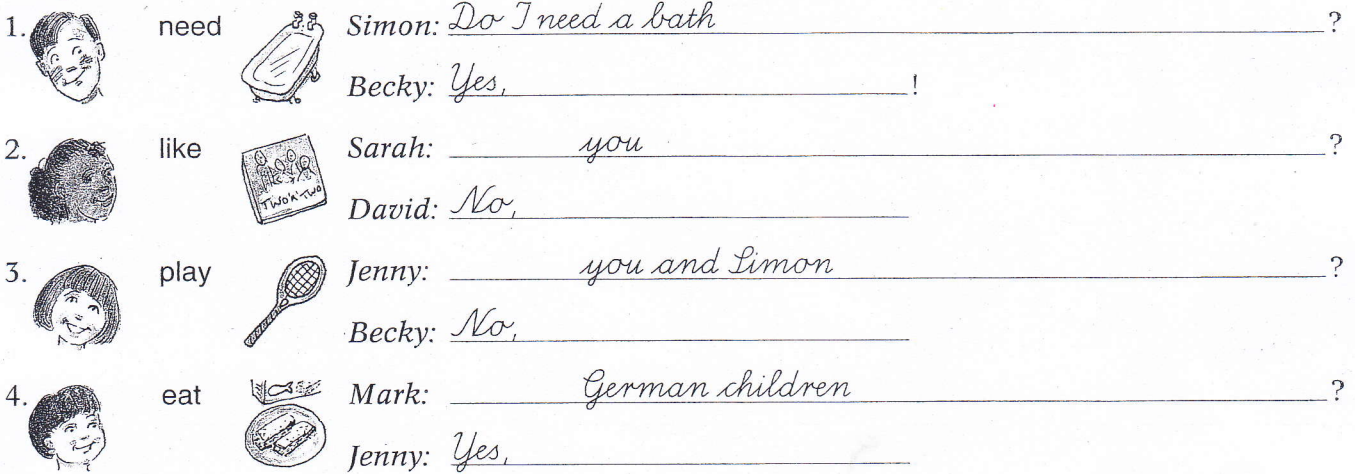 1. need Simon: Do I need a bath ?
Becky: Yes, !
2. like Sarah: you ?
TWO'N'TWO
David: No,
3. play Jenny: you and Simon ?
Becky: No,
4. eat Mark: German children ?
Jenny: Yes,